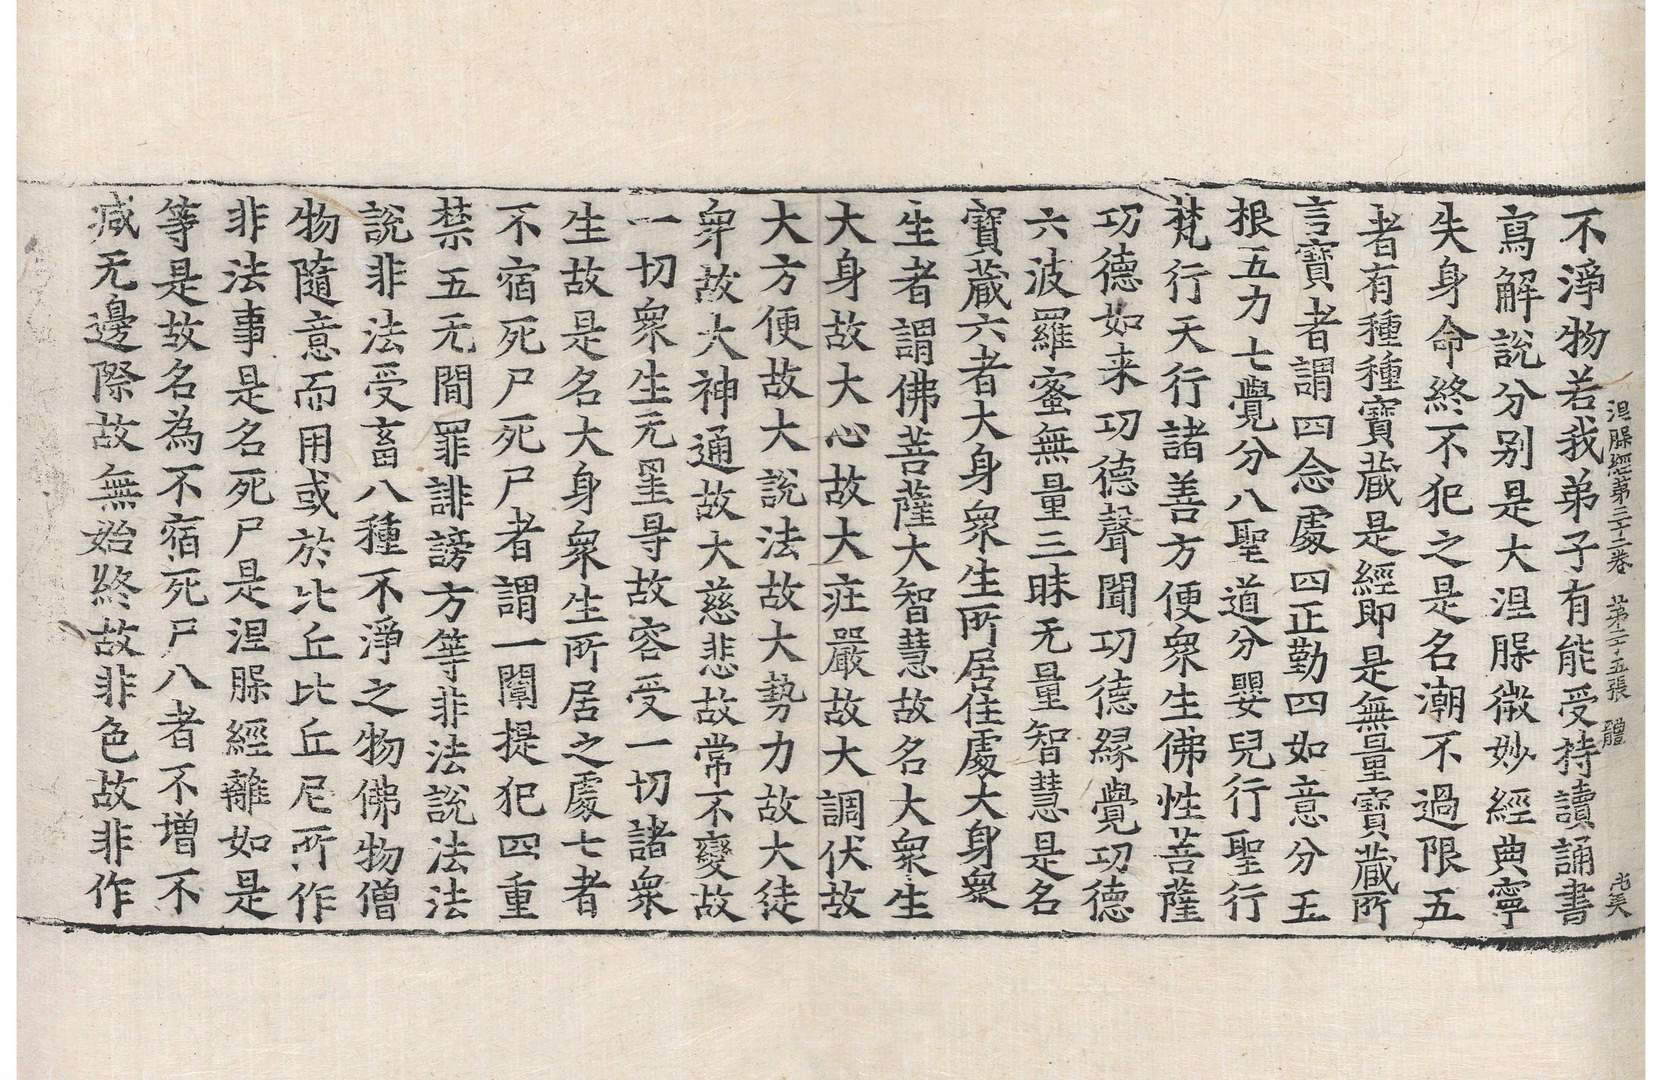 涅槃經第三十二卷 第二十五張 體
不淨物若我弟子有能受持讀誦書
寫解說分别是大涅槃微妙經典寧
失身命終不犯之是名潮不過限五
者有種種寶藏是經即是無量寶藏所
言寶者謂四念處四正勤四如意分五
根五力七覺分八聖道分嬰兒行聖行
梵行天行諸善方便衆生佛性菩薩
功德如来功德聲聞功德緣覺功德
六波羅蜜無量三昧无量智慧是名
寶藏六者大身衆生所居住處大身衆
生者謂佛菩薩大智慧故名大衆生
大身故大心故大莊嚴故大調伏故
大方便故大說法故大勢力故大徒
衆故大神通故大慈悲故常不變故
一切衆生无罣㝵故容受一切諸衆
生故是名大身衆生所居之處七者
不宿死尸死尸者謂一闡提犯四重
禁五无間罪誹謗方等非法說法法
說非法受畜八種不淨之物佛物僧
物隨意而用或於比丘比丘尼所作
非法事是名死尸是涅槃經離如是
等是故名為不宿死尸八者不增不
减无邊際故無始終故非色故非作